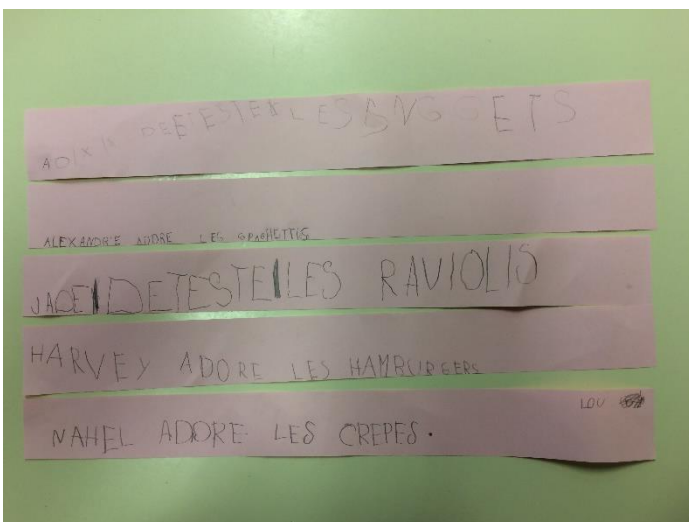 DETESTE LES
ALEXANDRE ADORE LES SPAGHETTIS
JADE DETESTE LES RAVIOLIS
HARVEY ADORE LES HAMBURGERS
LOU
NAHEL ADORE LES CREPES.